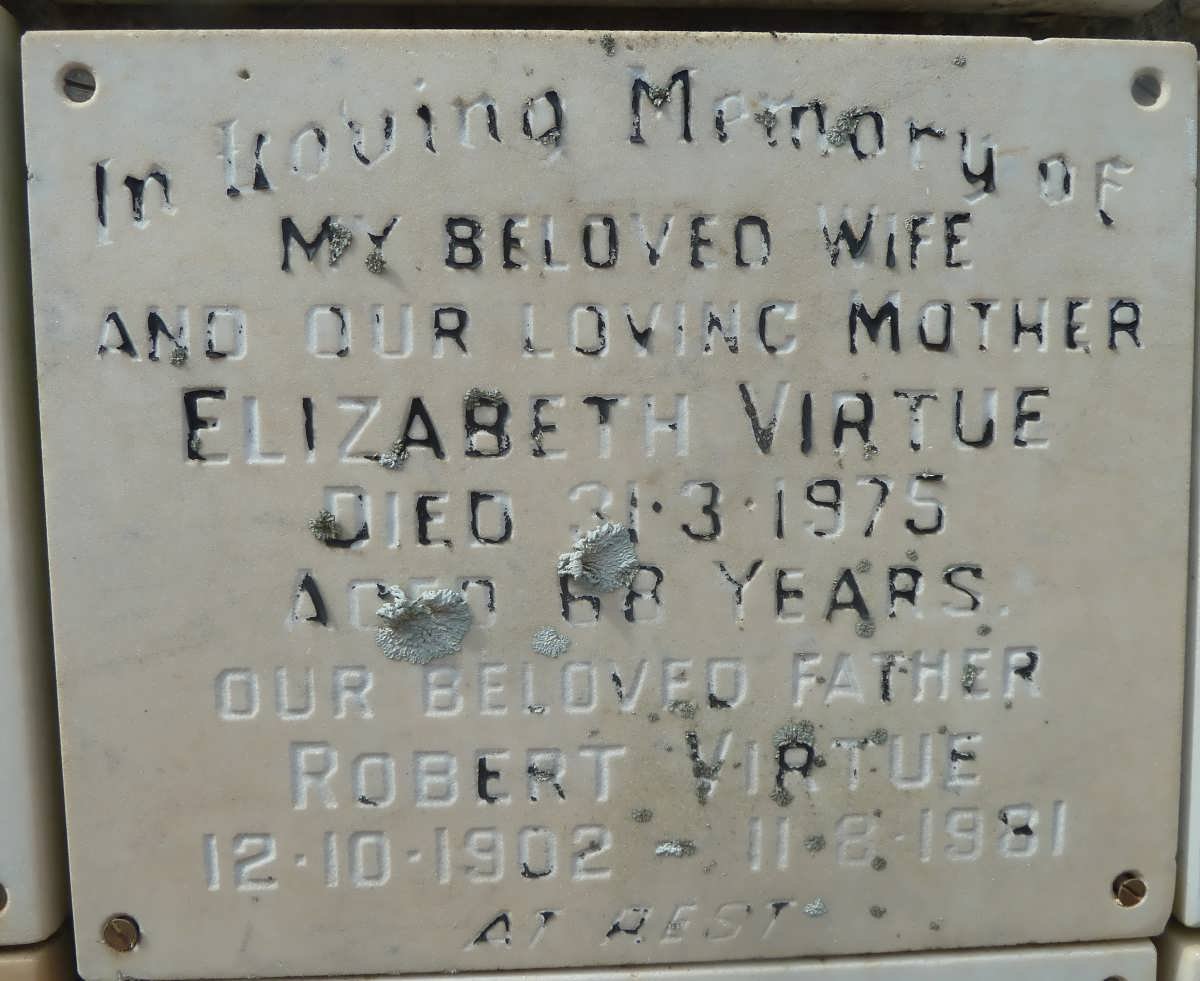 In Loving Memory of
MY BELOVED WIFE
AND OUR LOVING MOTHER
ELIZABETH VIRTUE
DIED 31·3·1975
AGED 68 YEARS.
OUR BELOVED FATHER
ROBERT VIRTUE
12·10·1902 - 11·8·1981
AT REST